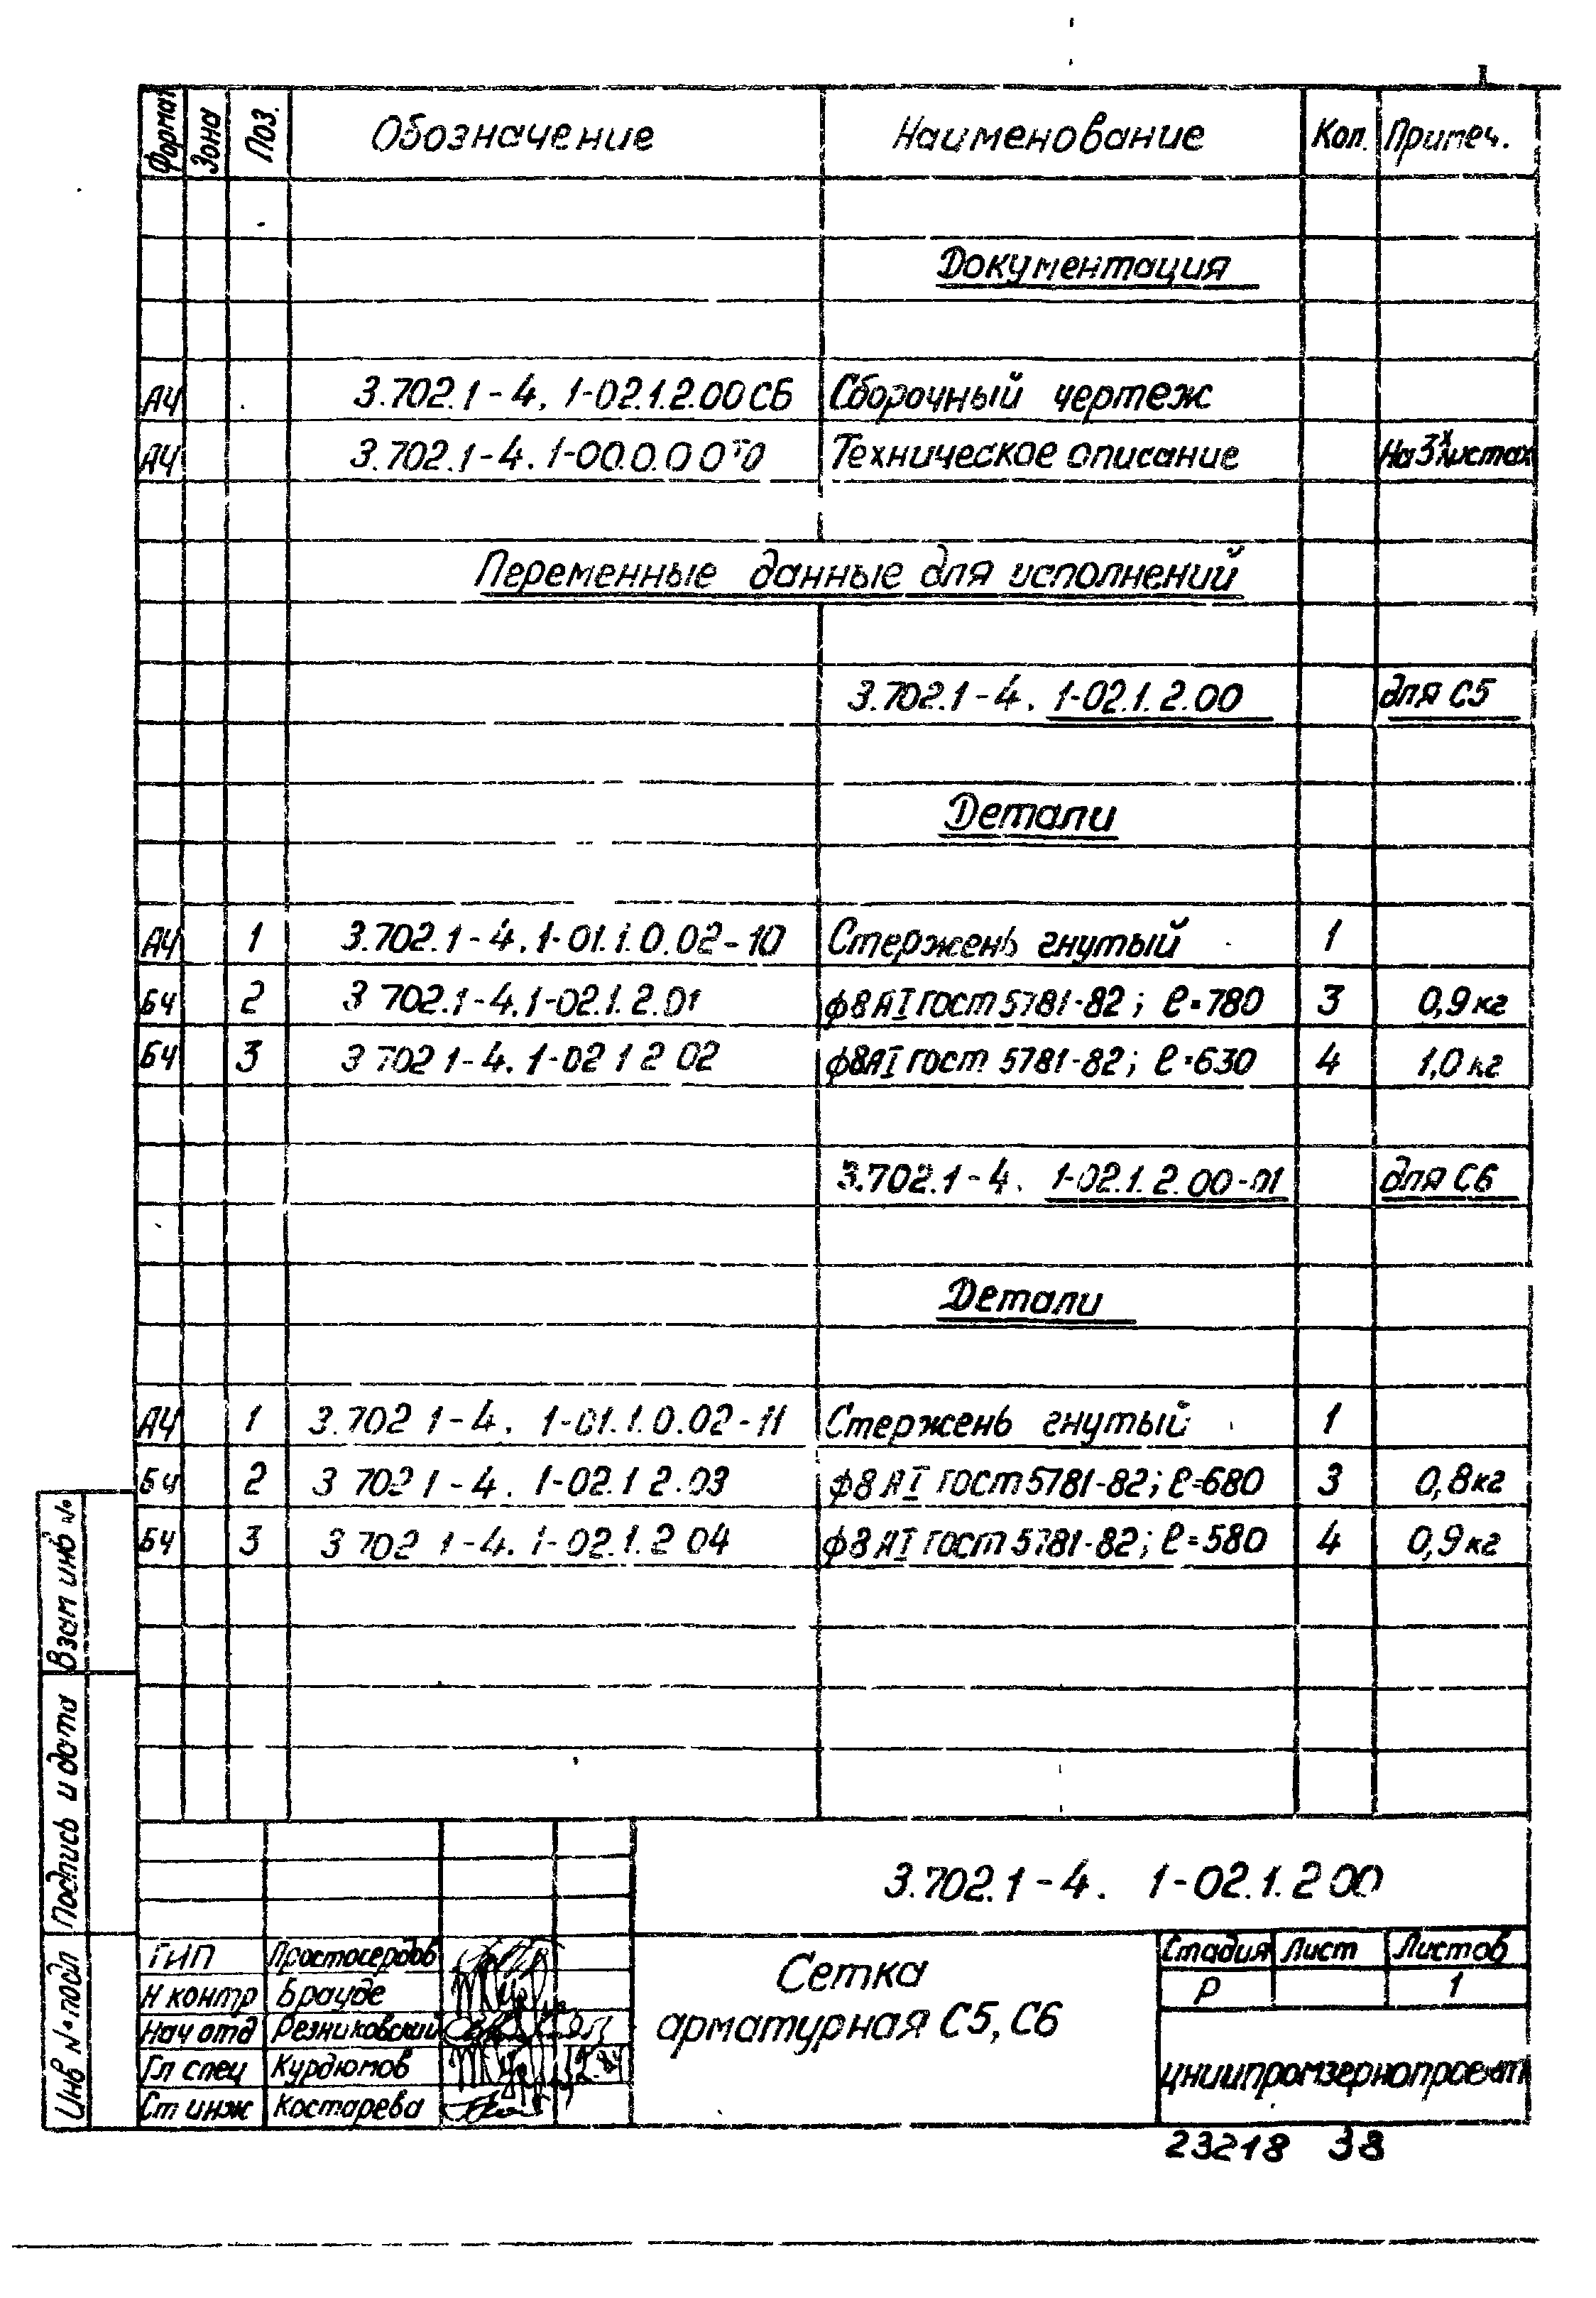 Формат Зона Поз. Обозначение Наименование Кол. Примеч.
Документация
А4 3.702.1-4. 1-02.1.2.00СБ Сборочный чертеж
А4 3.702.1-4. 1-00.0.00ТО Техническое описание На 3х листах
Переменные данные для исполнений
3.702.1-4. 1-02.1.2.00 для С5
Детали
А4 1 3.702.1-4.1-01.1.0.02-10 Стержень гнутый 1
БЧ 2 3 702.1-4.1-02.1.2.01 ф8АI ГОСТ 5781-82; ℓ=780 3 0,9кг
БЧ 3 3 702 1-4.1-02 1 2 02 ф8АI ГОСТ 5781-82; ℓ=630 4 1,0кг
3.702.1-4. 1-02.1.2.00-01 для С6
Детали
А4 1 3.702 1-4. 1-01.1.0.02-11 Стержень гнутый 1
БЧ 2 3 702 1-4. 1-02.1 2.03 ф8АI ГОСТ 5781-82; ℓ=680 3 0,8кг
БЧ 3 3 702 1-4. 1-02.1.2 04 ф8АI ГОСТ 5781-82; ℓ=580 4 0,9кг
Взам инв №
Подпись и дата
Инв № подл
3.702.1-4. 1-02.1.2 00
ГИП Простосердов
Н контр Брауде
Нач отд Резниковский
Гл спец Курдюмов
Ст инж Костарева
Сетка
арматурная С5, С6
Стадия Лист Листов
Р 1
ЦНИИПРОМЗЕРНОПРОЕКТ
23218 38